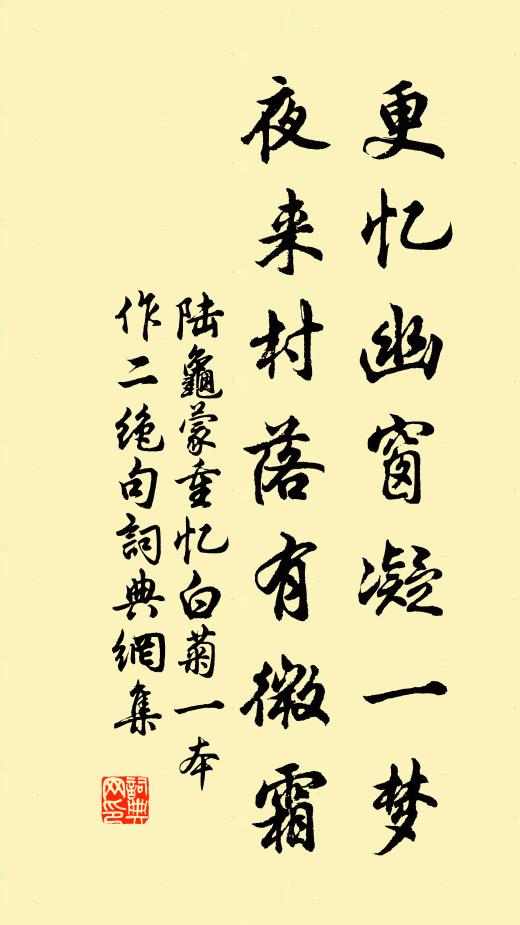 更忆幽窗凝一梦
夜来村落有微霜
陆龜蒙重忆白菊一本
作二绝句詞典網集
詞典网印